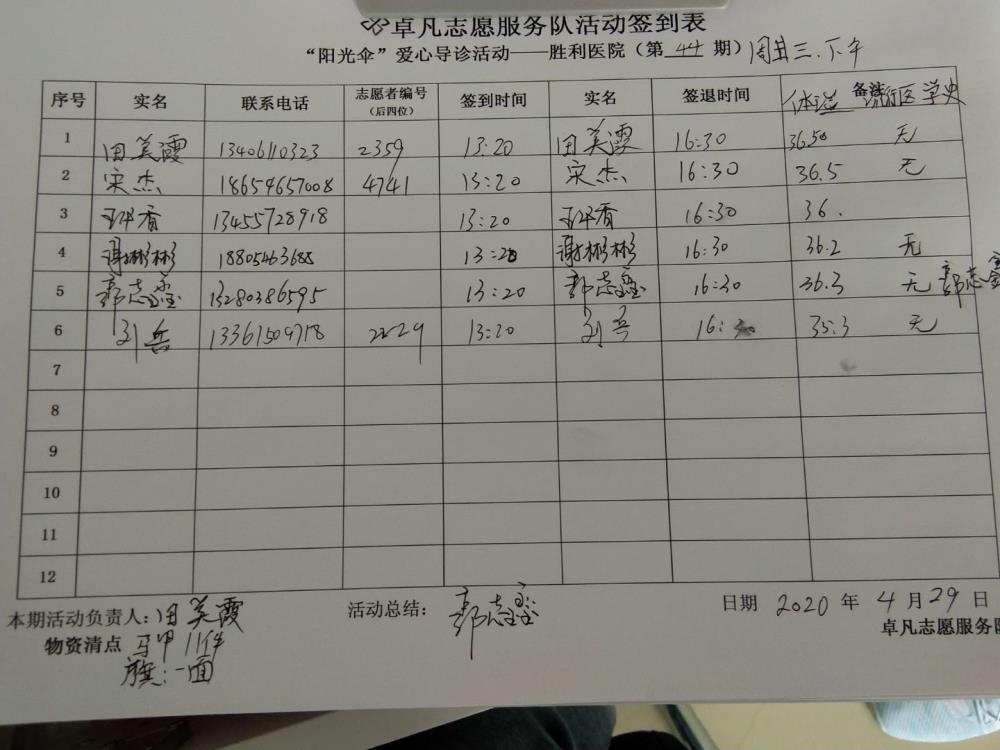 卓凡志愿服务队活动签到表
“阳光伞”爱心导诊活动——胜利医院（第 44 期）周三.下午
序号 实名 联系电话 志愿者编号（后四位） 签到时间 实名 签退时间 备注 体温 行医学史
1 田美霞 13406110323 2359 13:20 田美霞 16:30 36.50 无
2 宋杰 18654657008 4741 13:20 宋杰 16:30 36.5 无
3 13455728918 13:20 16:30 36.
4 谢彬彬 18805463688 13:20 谢彬彬 16:30 36.2 无
5 郭志鑫 13280386595 13:20 郭志鑫 16:30 36.3 无 郭志鑫
6 刘兵 13361509718 2229 13:20 刘兵 16:30 35.3 无
7
8
9
10
11
12
本期活动负责人：田美霞 活动总结：郭志鑫 日期 2020 年 4 月 29 日
物资清点 马甲 11件 卓凡志愿服务队
旗：一面